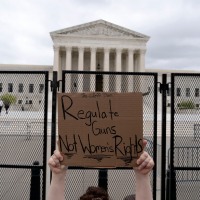 Regulate
Guns
Not Women's Rights